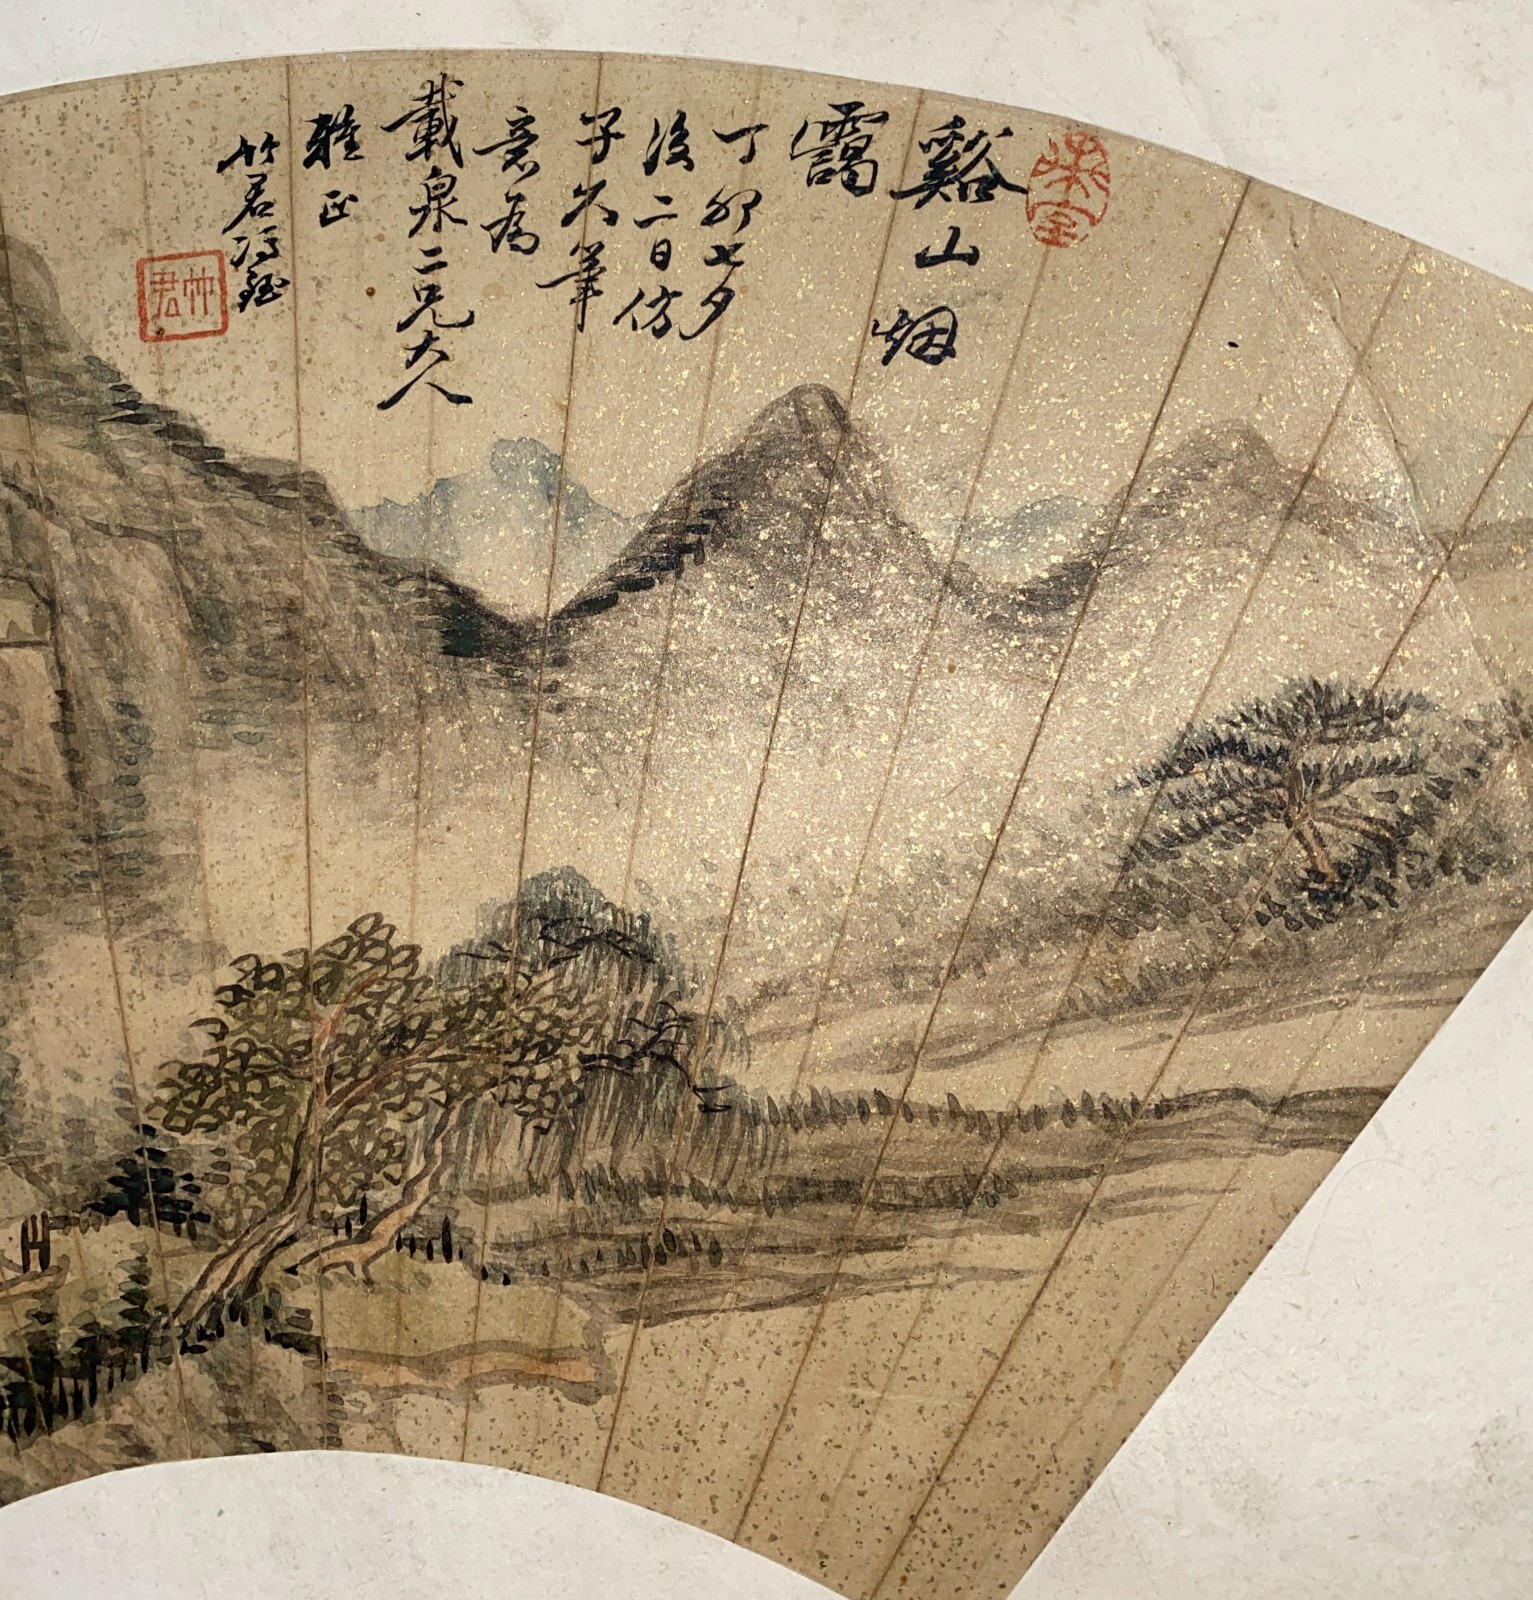 谿山烟
靄
丁卯七夕
後二日仿
子久筆
意為
載泉二兄大人
雅正
竹君馮鈺
竹君